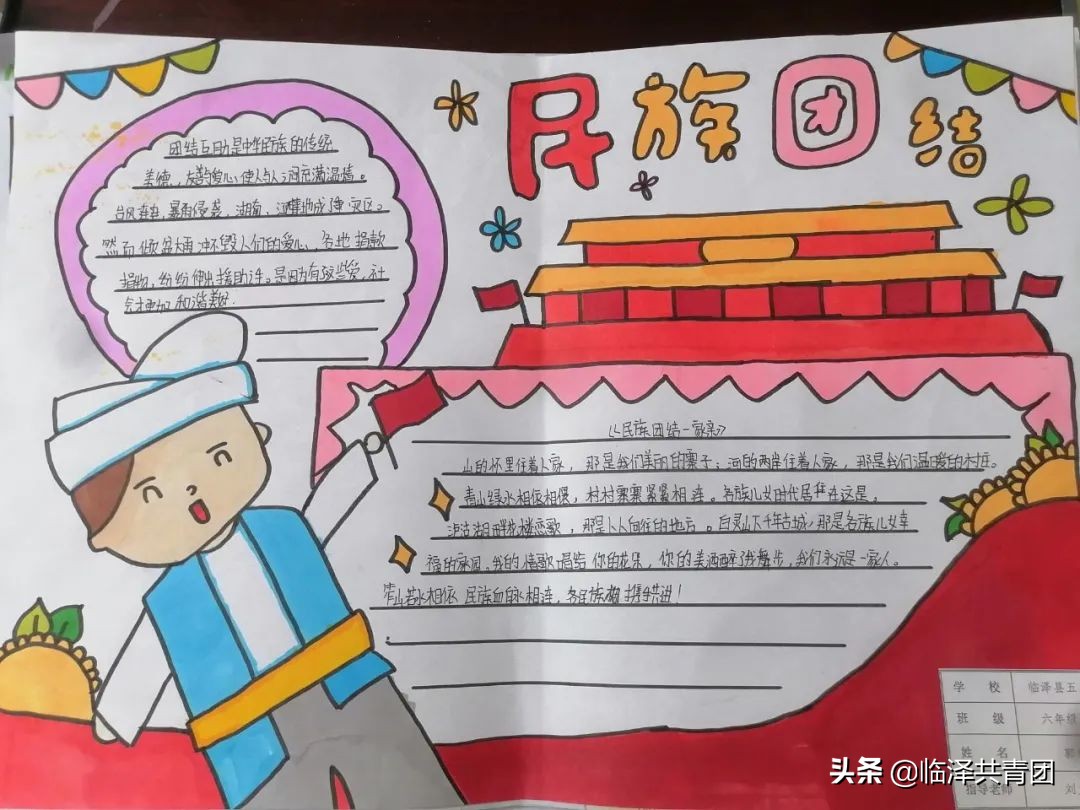 民族团结
团结互助是中华民族的传统
美德，友善的爱心使人与人之间充满温情。
台风 暴雨侵袭，湖南、河
然而倾盆大雨冲不毁人们的爱心，各地捐款
捐物，纷纷伸出援助之手。是因为有这些爱，社
会才更加和谐美好.
《民族团结一家亲》
山的怀里住着人家，那是我们美丽的寨子；河的两岸住着人家，那是我们温暖的木楞。
青山绿水相依相偎，村村寨寨紧紧相连。各族儿女时代居住在这里。
泸沽湖 恋歌，那是人人向往的地方。白灵山下千年古城，那是各族儿女幸
福的家园。我的 歌唱给你的花朵，你的美酒醉了我舞步，我们永远是一家人。
青山 水相依 民族血脉相连，各民族 携手共进！
学 校 临泽县五
班 级 六年级
姓 名 郭
指导老师 刘
头条 @临泽共青团